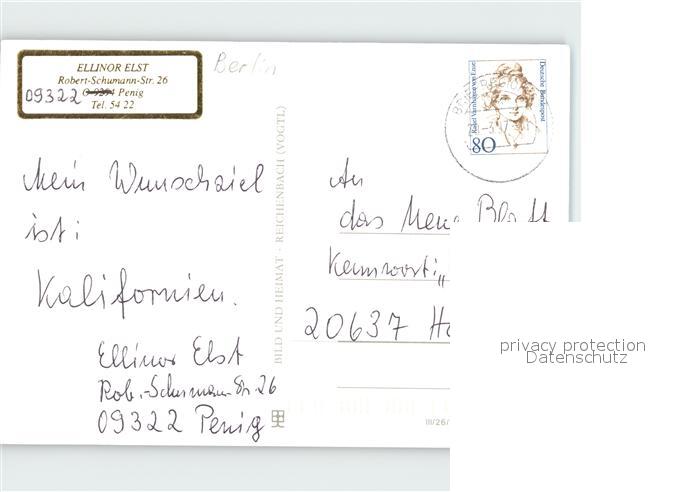 ELLINOR ELST
Robert-Schumann-Str. 26
09322 Penig
Tel. 54 22
Berlin
Deutsche Bundespost
Rahel Varnhagen von Ense
80
Mein Wunschziel
ist:
Kalifornien.
Ellinor Elst
Rob.-Schumann-Str. 26
09322 Penig
BILD UND HEIMAT · REICHENBACH (VOGTL)
An
das Neue Blatt
Kennwort: „
20637 Ha
III/26/
privacy protection
Datenschutz